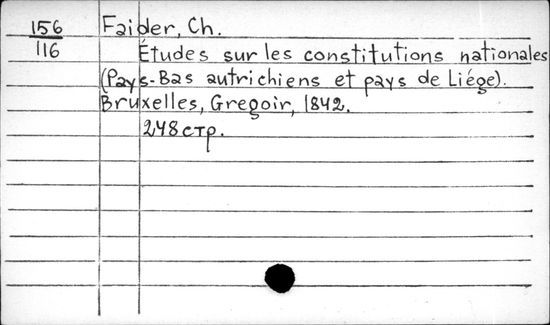 156 Faider, Ch.
116 Études sur les constitutions nationales
(Pays-Bas autrichiens et pays de Liége).
Bruxelles, Gregoir, 1842.
248 стр.